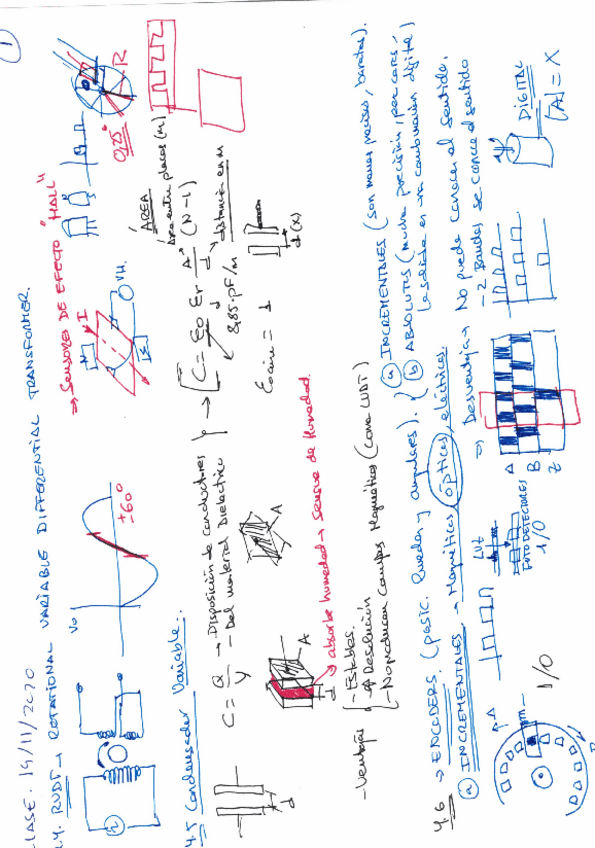 1
CLASE. 19/11/2020
4.4. RVDT → ROTATIONAL VARIABLE DIFFERENTIAL TRANSFORMER.
Vo
±60°
⇒ SENSORES DE EFECTO "HALL"
I
VH.
R
0,25°
4.5 Condensador Variable.
d
C = Q/V → Disposición de conductores
- Del material Dieléctrico
→ C = Eo Er A/d (N-1)
ÁREA
Área entre placas (m)
distancia en m
8,85·pF/m
Eaire = 1
d (x)
A
A
d
→ absorbe humedad → Sensor de humedad.
- Ventajas
- Estables.
- ↑ Resolución
- No producen campos Magnéticos (como LVDT)
4.6 → ENCODERS. (posic. lineales y angulares).
a) INCREMENTALES (son menos precisos, baratos).
b) ABSOLUTOS (mucha precisión, pero caros,
la salida es una combinación digital)
a) INCREMENTALES → Magnéticos, ópticos, eléctricos.
⇒ Desventaja → No puede conocer el sentido.
- 2 Bandas se conoce el sentido
1/0
LUZ
FOTODETECTORES
1/0
A
B
Z
DIGITAL
[A] = X